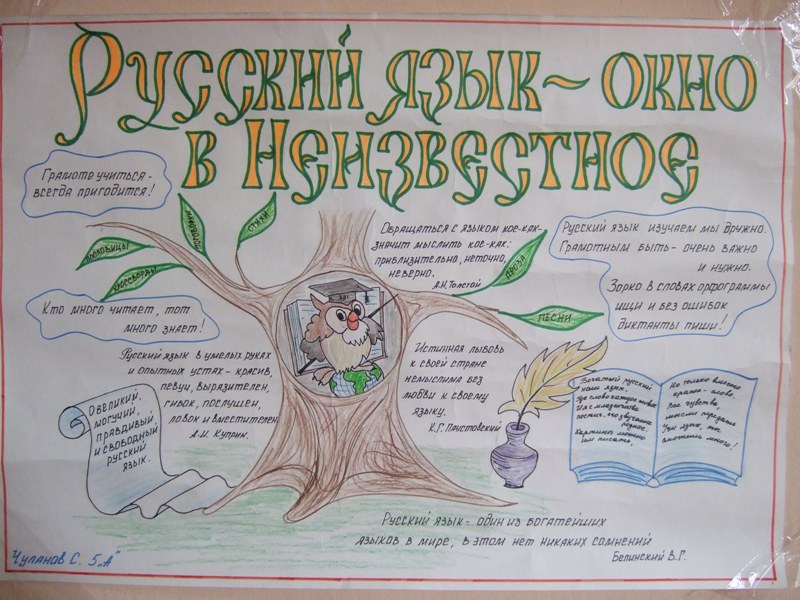 Русский язык ~ окно
в Неизвестное
Грамоте учиться -
всегда пригодится!
пословицы
поговорки
стихи
кроссворды
Кто много читает, тот
много знает!
Обращаться с языком кое-как-
значит мыслить кое-как:
приблизительно, неточно,
неверно.
А.Н.Толстой
проза
песни
Русский язык изучаем мы дружно.
Грамотным быть - очень важно
и нужно.
Зорко в словах орфограммы
ищи и без ошибок
диктанты пиши!
Русский язык в умелых руках
и опытных устах - красив,
певуч, выразителен,
гибок, послушен,
ловок и вместителен
А.И. Куприн.
Истинная любовь
к своей стране
немыслима без
любви к своему
языку.
К.Г. Паустовский
О великий,
могучий,
правдивый
и свободный
русский
язык.
Богатый русский
наш язык.
Где слово каждое
Картины можно
им писать,
Но только вместо
красок - слово.
Все чувства,
мысли передать
много!
Русский язык - один из богатейших
языков в мире, в этом нет никаких сомнений
Белинский В.Г.
Чупанов С. 5„А"